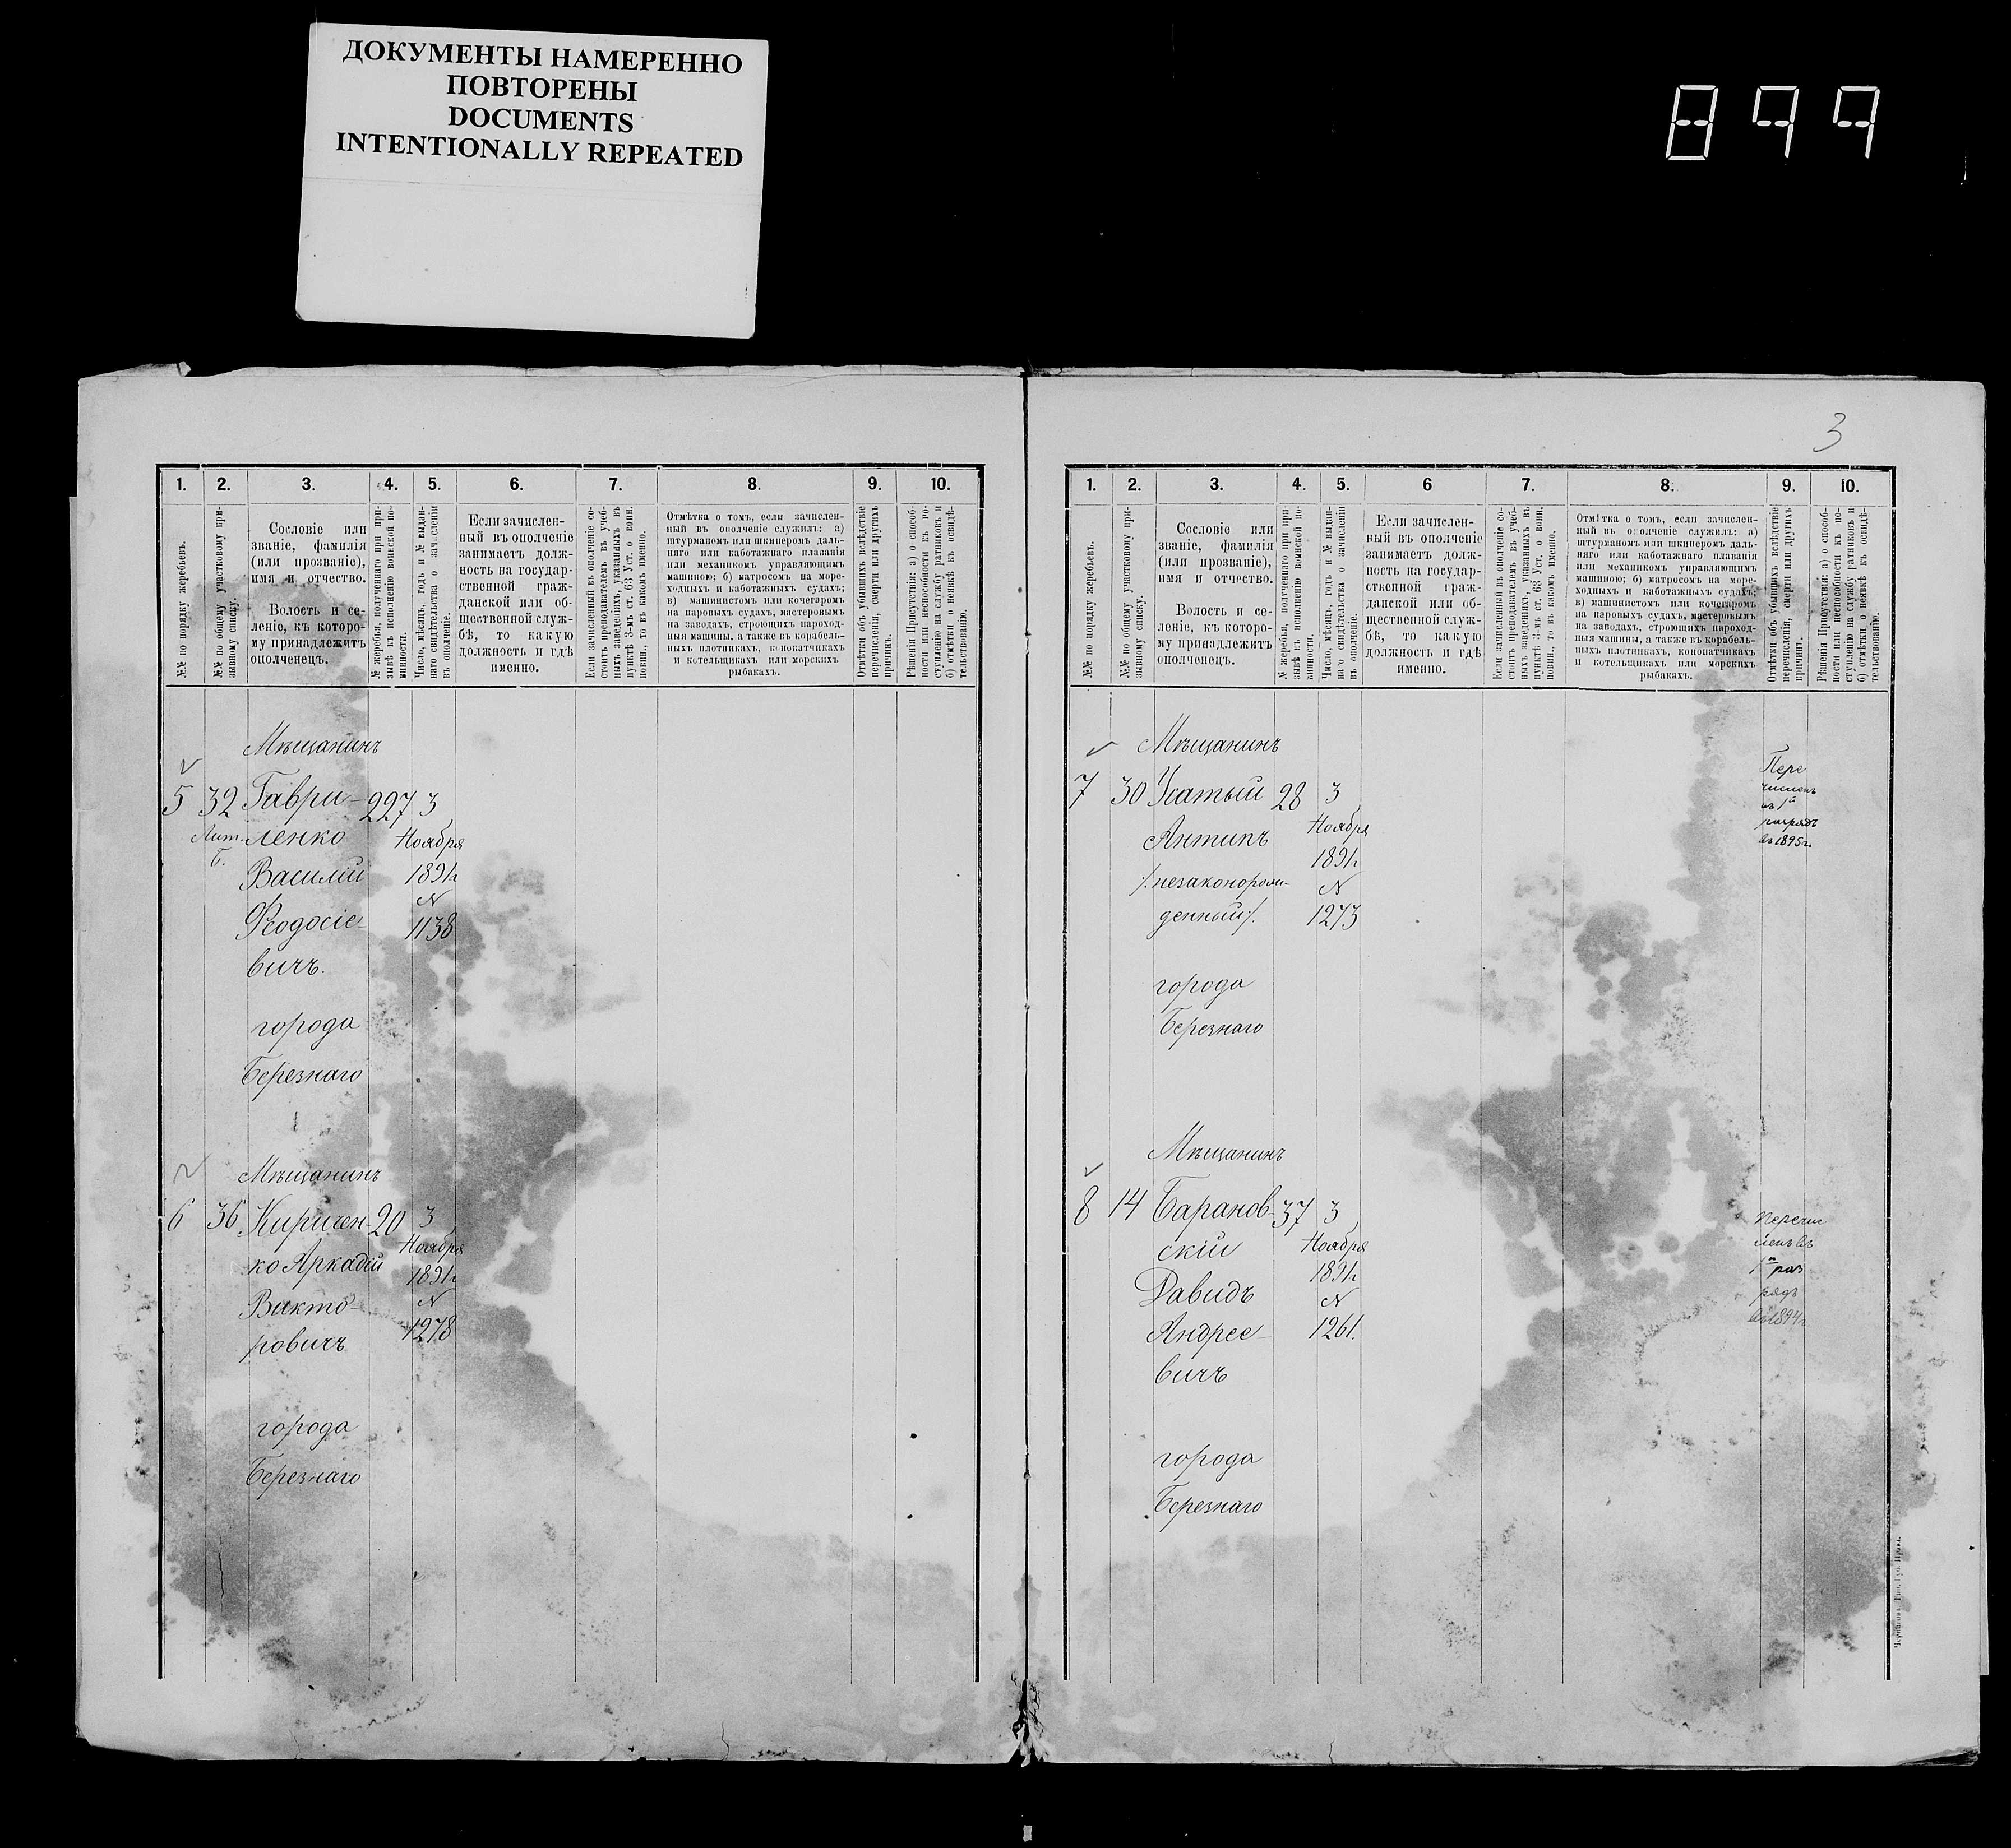 ДОКУМЕНТЫ НАМЕРЕННО
ПОВТОРЕНЫ
DOCUMENTS
INTENTIONALLY REPEATED
899
1. 2. 3. 4. 5. 6. 7. 8. 9. 10.
№№ по порядку жеребьевъ.
№№ по общему участковому при-
зывному списку.
Сословіе или
званіе, фамилія
(или прозваніе),
имя и отчество.
Волость и се-
леніе, къ которо-
му принадлежитъ
ополченецъ.
№ жеребья, полученнаго при при-
зывѣ къ исполненію воинской по-
винности.
Число, мѣсяцъ, годъ и № выдан-
наго свидѣтельства о зачисленіи
въ ополченіе.
Если зачислен-
ный въ ополченіе
занимаетъ долж-
ность на государ-
ственной граж-
данской или об-
щественной служ-
бѣ, то какую
должность и гдѣ
именно.
Если зачисленный въ ополченіе со-
стоитъ преподавателемъ въ учеб-
ныхъ заведеніяхъ, указанныхъ въ
пунктѣ 3-мъ ст. 63 Уст. о воин.
повин., то въ какомъ именно.
Отмѣтка о томъ, если зачислен-
ный въ ополченіе служилъ: а)
штурманомъ или шкиперомъ даль-
няго или каботажнаго плаванія
или механикомъ управляющимъ
машиною; б) матросомъ на море-
ходныхъ и каботажныхъ судахъ;
в) машинистомъ или кочегаромъ
на паровыхъ судахъ, мастеровымъ
на заводахъ, строющихъ пароход-
ныя машины, а также въ корабель-
ныхъ плотникахъ, конопатчикахъ
и котельщикахъ или морскихъ
рыбакахъ.
Отмѣтки объ убывшихъ вслѣдствіе
перечисленія, смерти или другихъ
причинъ.
Рѣшенія Присутствія: а) о способ-
ности или неспособности къ по-
ступленію на службу ратниковъ и
б) отмѣтки о неявкѣ къ освидѣ-
тельствованію.
Мѣщанинъ
5 32 Гаври- 227 3
Лит. ленко Ноября
Б.
Василій 1891г
№
Феодосіе- 1138
вичъ.
города
Березнаго
Мѣщанинъ
6 36 Киричен- 20 3
Ноября
ко Аркадій 1891г
Викто- №
ровичъ 1278
города
Березнаго
3
1. 2. 3. 4. 5. 6 7. 8. 9. 10.
№№ по порядку жеребьевъ.
№№ по общему участковому при-
зывному списку.
Сословіе или
званіе, фамилія
(или прозваніе),
имя и отчество.
Волость и се-
леніе, къ которо-
му принадлежитъ
ополченецъ.
№ жеребья, полученнаго при при-
зывѣ къ исполненію воинской по-
винности.
Число, мѣсяцъ, годъ и № выдан-
наго свидѣтельства о зачисленіи
въ ополченіе.
Если зачислен-
ный въ ополченіе
занимаетъ долж-
ность на государ-
ственной граж-
данской или об-
щественной служ-
бѣ, то какую
должность и гдѣ
именно.
Если зачисленный въ ополченіе со-
стоитъ преподавателемъ въ учеб-
ныхъ заведеніяхъ, указанныхъ въ
пунктѣ 3-мъ ст. 63 Уст. о воин.
повин., то въ какомъ именно.
Отмѣтка о томъ, если зачислен-
ный въ ополченіе служилъ: а)
штурманомъ или шкиперомъ даль-
няго или каботажнаго плаванія
или механикомъ управляющимъ
машиною; б) матросомъ на море-
ходныхъ и каботажныхъ судахъ;
в) машинистомъ или кочегаромъ
на паровыхъ судахъ, мастеровымъ
на заводахъ, строющихъ пароход-
ныя машины, а также въ корабель-
ныхъ плотникахъ, конопатчикахъ
и котельщикахъ или морскихъ
рыбакахъ.
Отмѣтки объ убывшихъ вслѣдствіе
перечисленія, смерти или другихъ
причинъ.
Рѣшенія Присутствія: а) о способ-
ности или неспособности къ по-
ступленію на службу ратниковъ и
б) отмѣтки о неявкѣ къ освидѣ-
тельствованію.
Мѣщанинъ
7 30 Усатый 28 3
Антипъ Ноября
1891г
/незаконорож- №
денный/. 1273
города
Березнаго
Пере
численъ
въ 1й
разрядъ
въ 1895г.
Мѣщанинъ
8 14 Баранов- 37 3
скій Ноября
Давидъ 1891г
№
Андрее- 1261.
вичъ
города
Березнаго
Перечис
ленъ въ
1й раз
рядъ
въ 1894г
Черниговъ. Тип. Губ. Правл.